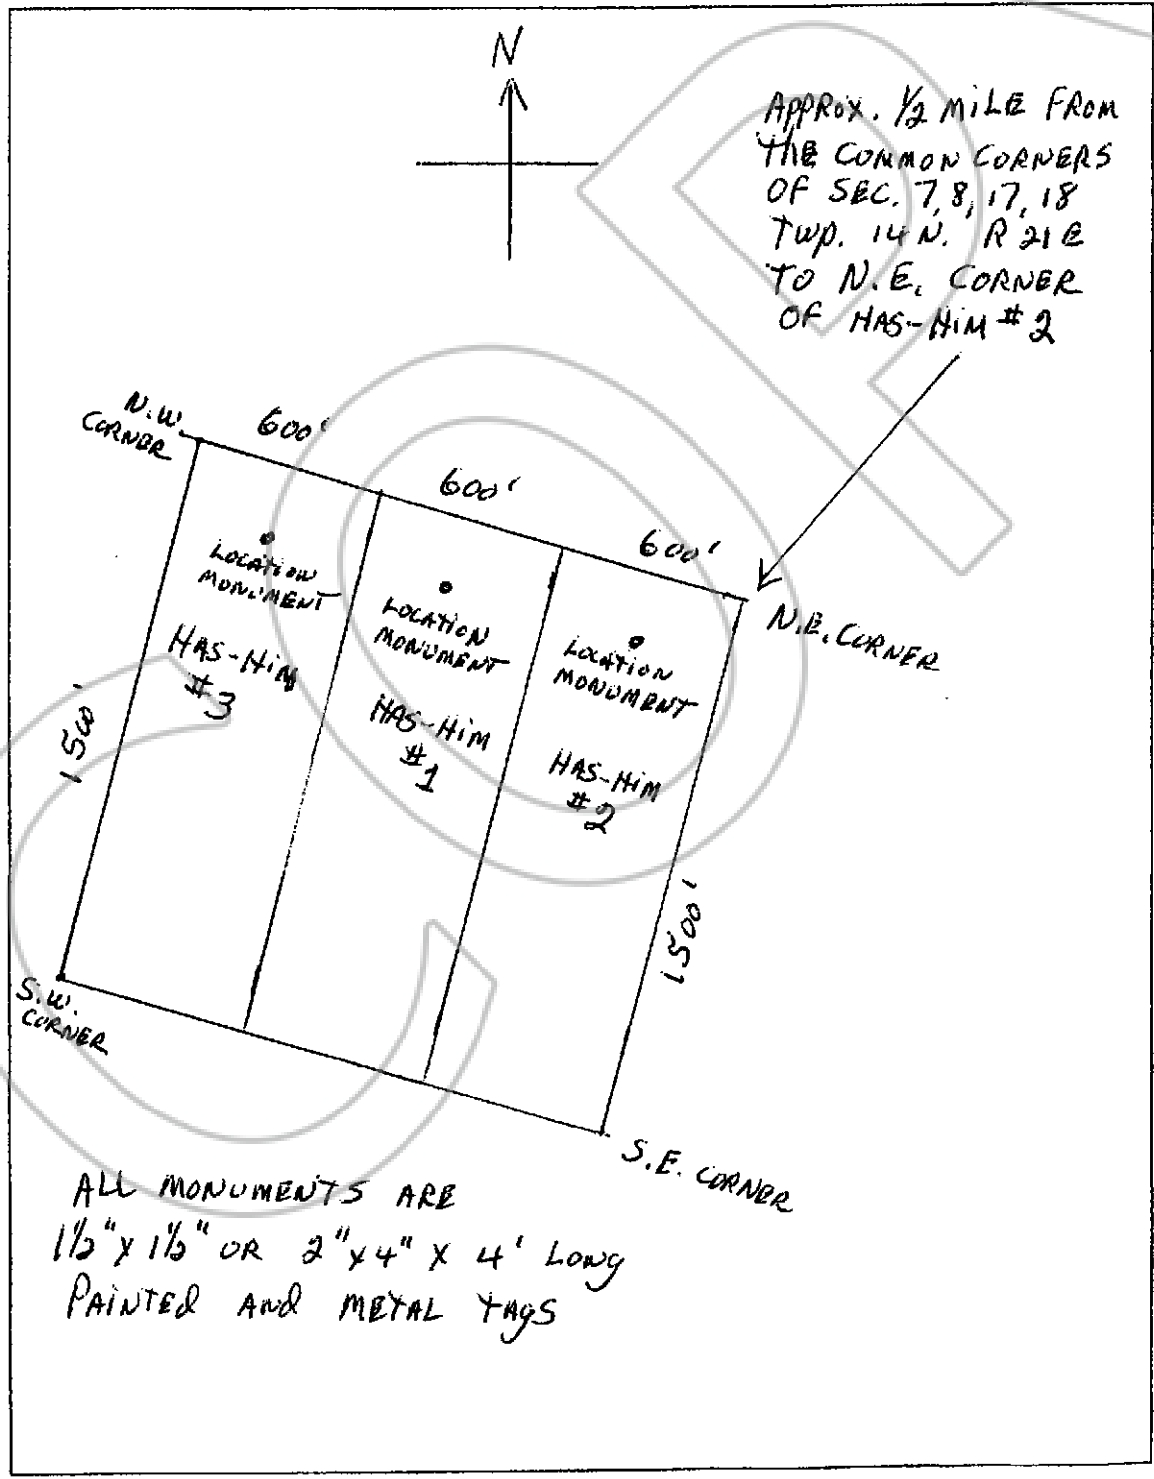 N
APPROX. 1/2 MILE FROM
THE COMMON CORNERS
OF SEC. 7, 8, 17, 18
TWP. 14 N. R 21 E
TO N.E. CORNER
OF HAS-HIM #2
N.W.
CORNER
600'
600'
600'
N.E. CORNER
LOCATION
MONUMENT
HAS-HIM
#3
LOCATION
MONUMENT
HAS-HIM
#1
LOCATION
MONUMENT
HAS-HIM
#2
1500'
1500'
S.W.
CORNER
S.E. CORNER
ALL MONUMENTS ARE
1 1/2" X 1 1/2" OR 2" X 4" X 4' LONG
PAINTED AND METAL TAGS
COP